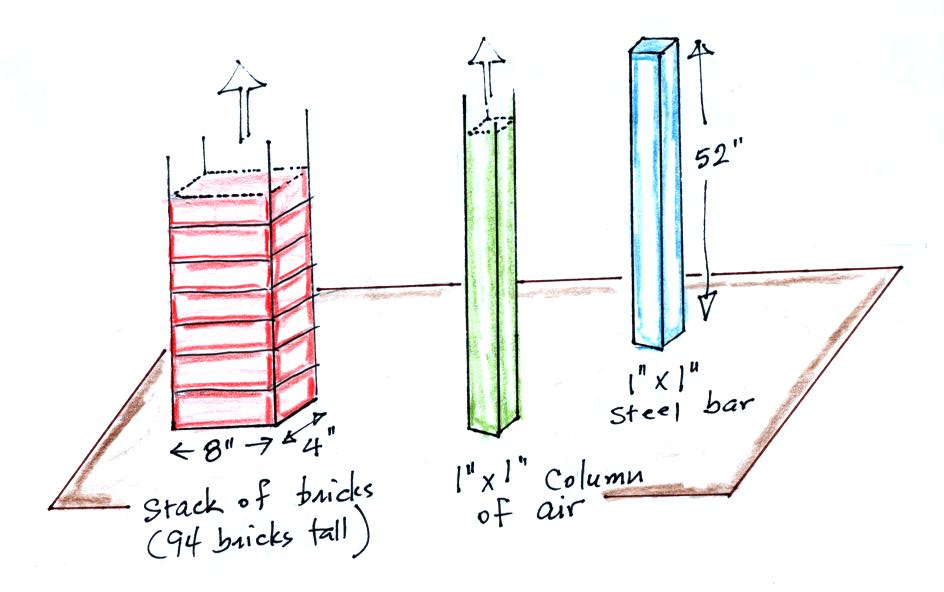 52"
1" x 1"
steel bar
8"
4"
1" x 1" column
of air
Stack of bricks
(94 bricks tall)